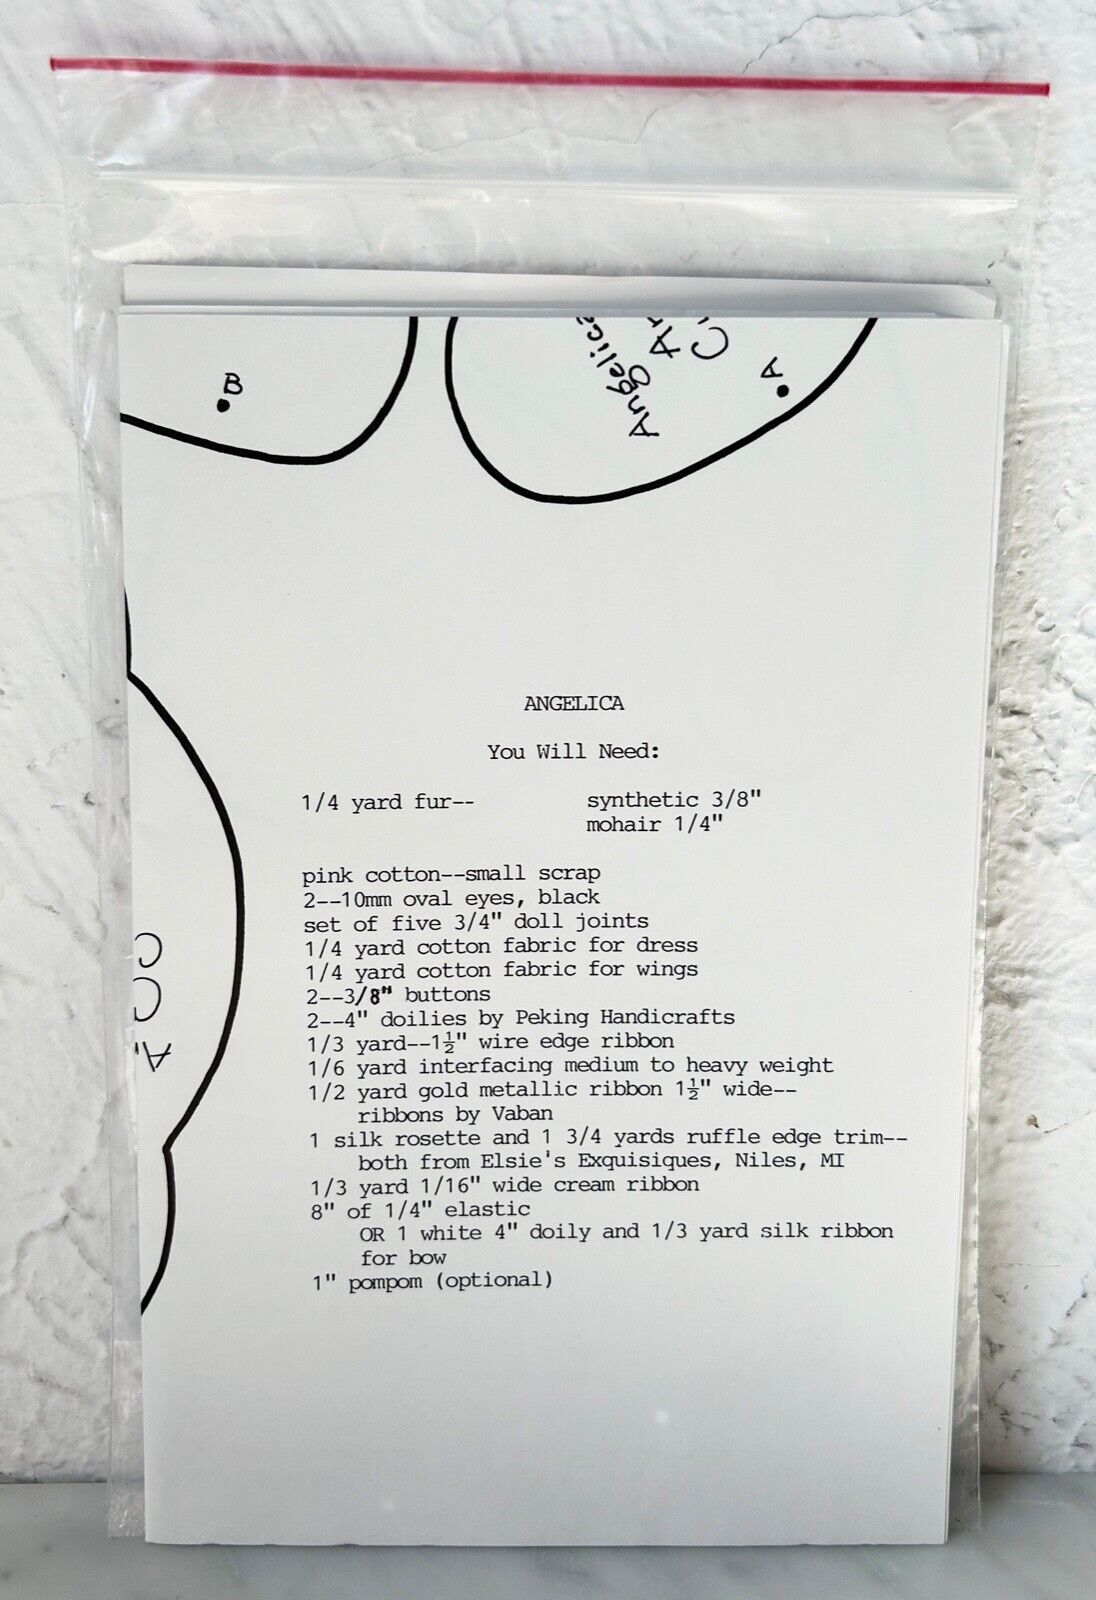 B
Angelica
A
ANGELICA
You Will Need:
1/4 yard fur-- synthetic 3/8"
mohair 1/4"
pink cotton--small scrap
2--10mm oval eyes, black
set of five 3/4" doll joints
1/4 yard cotton fabric for dress
1/4 yard cotton fabric for wings
2--3/8" buttons
2--4" doilies by Peking Handicrafts
1/3 yard--1½" wire edge ribbon
1/6 yard interfacing medium to heavy weight
1/2 yard gold metallic ribbon 1½" wide--
ribbons by Vaban
1 silk rosette and 1 3/4 yards ruffle edge trim--
both from Elsie's Exquisiques, Niles, MI
1/3 yard 1/16" wide cream ribbon
8" of 1/4" elastic
OR 1 white 4" doily and 1/3 yard silk ribbon
for bow
1" pompom (optional)